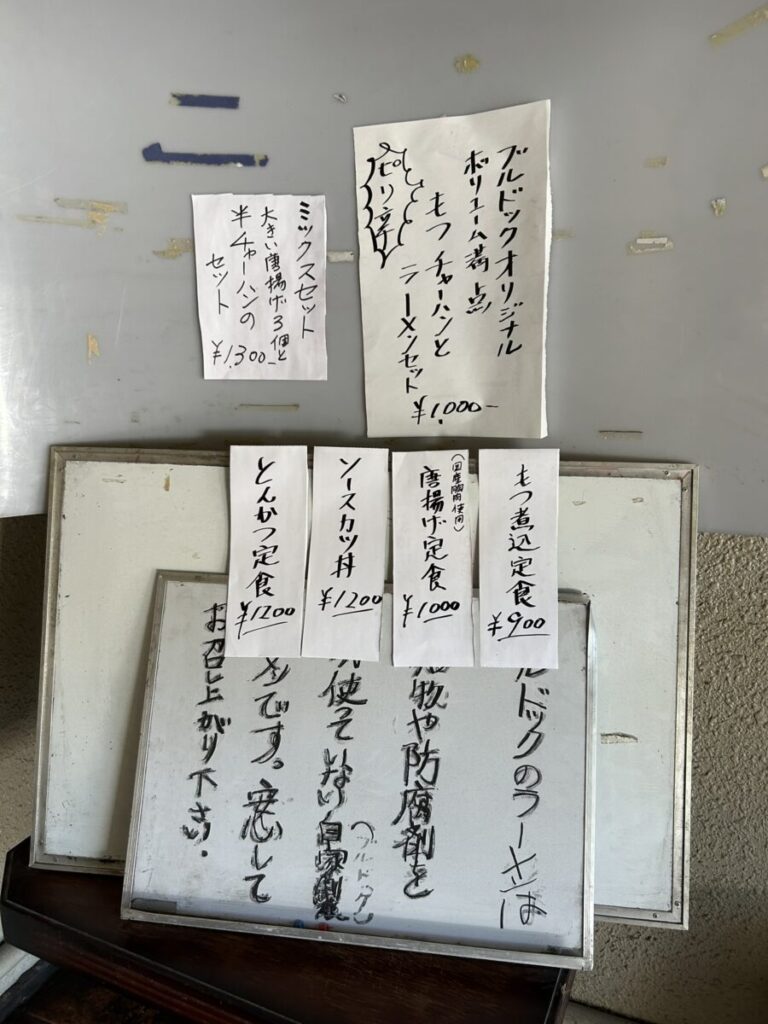 ブルドックオリジナル
ボリューム満点
もつチャーハンと
ラーメンセット
¥1,000-
ピリ辛
ミックスセット
大きい唐揚げ3個と
半チャーハンの
セット
¥1,300-
もつ煮込定食
¥900
(国産鶏肉使用)
唐揚げ定食
¥1000
ソースカツ丼
¥1200
とんかつ定食
¥1200
ルドックのラーメンは
物や防腐剤と
使っていない自家製
(ブルドック)
です。安心して
お召し上がり下さい。